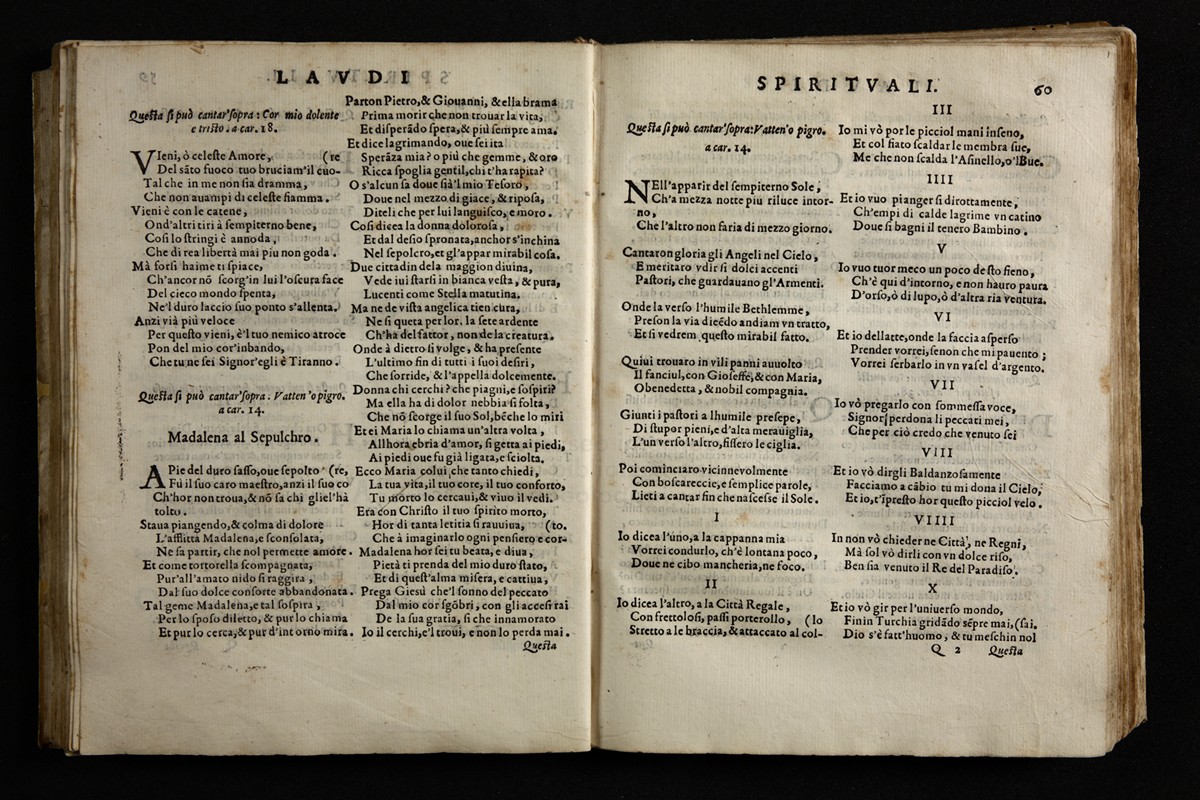 LAVDI
Questa si può cantar'sopra: Cor mio dolente
e tristo. a car. 18.
VIeni, ò celeste Amore, (re
Del sãto fuoco tuo bruciam'il cuo-
Tal che in me non sia dramma,
Che non auampi di celeste fiamma.
Vieni è con le catene,
Ond'altri tiri à sempiterno bene,
Cosi lo stringi è annoda,
Che di rea libertà mai piu non goda.
Mà forsi haime ti spiace,
Ch'ancor nõ scorg'in lui l'oscura face
Del cieco mondo spenta,
Ne'l duro laccio suo ponto s'allenta.
Anzi vià più veloce
Per questo vieni, è'l tuo nemico atroce
Pon del mio cor'inbando,
Che tu ne sei Signor'egli è Tiranno.
Questa si può cantar'sopra. Vatten'o pigro.
a car. 14.
Madalena al Sepulchro.
A Pie del duro sasso, oue sepolto (re,
Fú il suo caro maestro, anzi il suo co
Ch'hor non troua, & nõ sa chi gliel'hà
tolto.
Staua piangendo, & colma di dolore
L'afflitta Madalena, e sconsolata,
Ne sa partir, che nol permette amore.
Et come tortorella scompagnata,
Pur'all'amato nido si raggira,
Dal suo dolce consorte abbandonata.
Tal geme Madalena, e tal sospira,
Per lo sposo diletto, & pur lo chiama
Et pur lo cerca, & pur d'intorno mira.
Parton Pietro, & Giouanni, & ella brama
Prima morir che non trouar la vita,
Et disperãdo spera, & più sempre ama.
Et dice lagrimando, oue sei ita
Sperãza mia? o più che gemme, & oro
Ricca spoglia gentil, chi t'ha rapita?
O s'alcun sa doue sià'l mio Tesoro,
Doue nel mezzo di giace, & riposa,
Diteli che per lui languisco, e moro.
Cosi dicea la donna dolorosa,
Et dal desio spronata, anchor s'inchina
Nel sepolcro, et gl'appar mirabil cosa.
Due cittadin dela maggion diuina,
Vede iui starsi in bianca vesta, & pura,
Lucenti come Stella matutina.
Ma ne de vista angelica tien cura,
Ne si queta per lor, la sete ardente
Ch'ha del fattor, non de la creatura.
Onde à dietro si volge, & ha presente
L'ultimo fin di tutti i suoi desiri,
Che sorride, & l'appella dolcemente.
Donna chi cerchi? che piagni, e sospiri?
Ma ella ha di dolor nebbia si folta,
Che nõ scorge il suo Sol, bẽche lo miri
Et ei Maria lo chiama un'altra volta,
Allhora ebria d'amor, si getta ai piedi,
Ai piedi oue fu già ligata, e sciolta.
Ecco Maria colui che tanto chiedi,
La tua vita, il tuo core, il tuo conforto,
Tu morto lo cercaui, & viuo il vedi.
Era con Christo il tuo spirito morto,
Hor di tanta letitia si rauuiua, (to.
Che à imaginarlo ogni pensiero e cor-
Madalena hor sei tu beata, e diua,
Pietà ti prenda del mio duro stato,
Et di quest'alma misera, e cattiua,
Prega Giesù che'l sonno del peccato
Dal mio cor sgõbri, con gli accesi rai
De la sua gratia, si che innamorato
Io il cerchi, e'l troui, e non lo perda mai.
Questa
SPIRITVALI.
60
Questa si può cantar'sopra: Vatten'o pigro.
a car. 14.
NEll'apparir del sempiterno Sole,
Ch'a mezza notte piu riluce intor-
no,
Che l'altro non faria di mezzo giorno.
Cantaron gloria gli Angeli nel Cielo,
E meritaro vdir si dolci accenti
Pastori, che guardauano gl'Armenti.
Onde la verso l'humile Bethlemme,
Preson la via dicẽdo andiam vn tratto,
Et si vedrem questo mirabil fatto.
Quiui trouaro in vili panni auuolto
Il fanciul, con Gioseffe, & con Maria,
Obenedetta, & nobil compagnia.
Giunti i pastori a lhumile presepe,
Di stupor pieni, e d'alta merauiglia,
L'un verso l'altro, fissero le ciglia.
Poi cominciaro vicinneuolmente
Con boscareccie, e semplice parole,
Lieti a cantar fin che nascesse il Sole.
I
Io dicea l'uno, a la cappanna mia
Vorrei condurlo, ch'è lontana poco,
Doue ne cibo mancheria, ne foco.
II
Io dicea l'altro, a la Città Regale,
Con frettolosi, passi porterollo, (lo
Stretto a le braccia, & attaccato al col-
III
Io mi vò por le picciol mani inseno,
Et col fiato scaldar le membra sue,
Me che non scalda l'Asinello, o'l Bue.
IIII
Et io vuo pianger si dirottamente,
Ch'empi di calde lagrime vn catino
Doue si bagni il tenero Bambino.
V
Io vuo tuor meco un poco desto fieno,
Ch'è qui d'intorno, e non hauro paura
D'orso, ò di lupo, ò d'altra ria ventura.
VI
Et io dellatte, onde la faccia asperso
Prender vorrei, se non che mi pauento;
Vorrei serbarlo in vn vasel d'argento.
VII
Io vò pregarlo con sommessa voce,
Signor perdona li peccati mei,
Che per ciò credo che venuto sei
VIII
Et io vò dirgli Baldanzosamente
Facciamo a cãbio tu mi dona il Cielo,
Et io, t'ipresto hor questo picciol velo.
VIIII
In non vò chieder ne Città, ne Regni,
Mà sol vò dirli con vn dolce riso,
Ben sia venuto il Re del Paradiso.
X
Et io vò gir per l'uniuerso mondo,
Fin in Turchia gridãdo sẽpre mai, (sai.
Dio s'è fatt'huomo, & tu meschin nol
Q 2 Questa